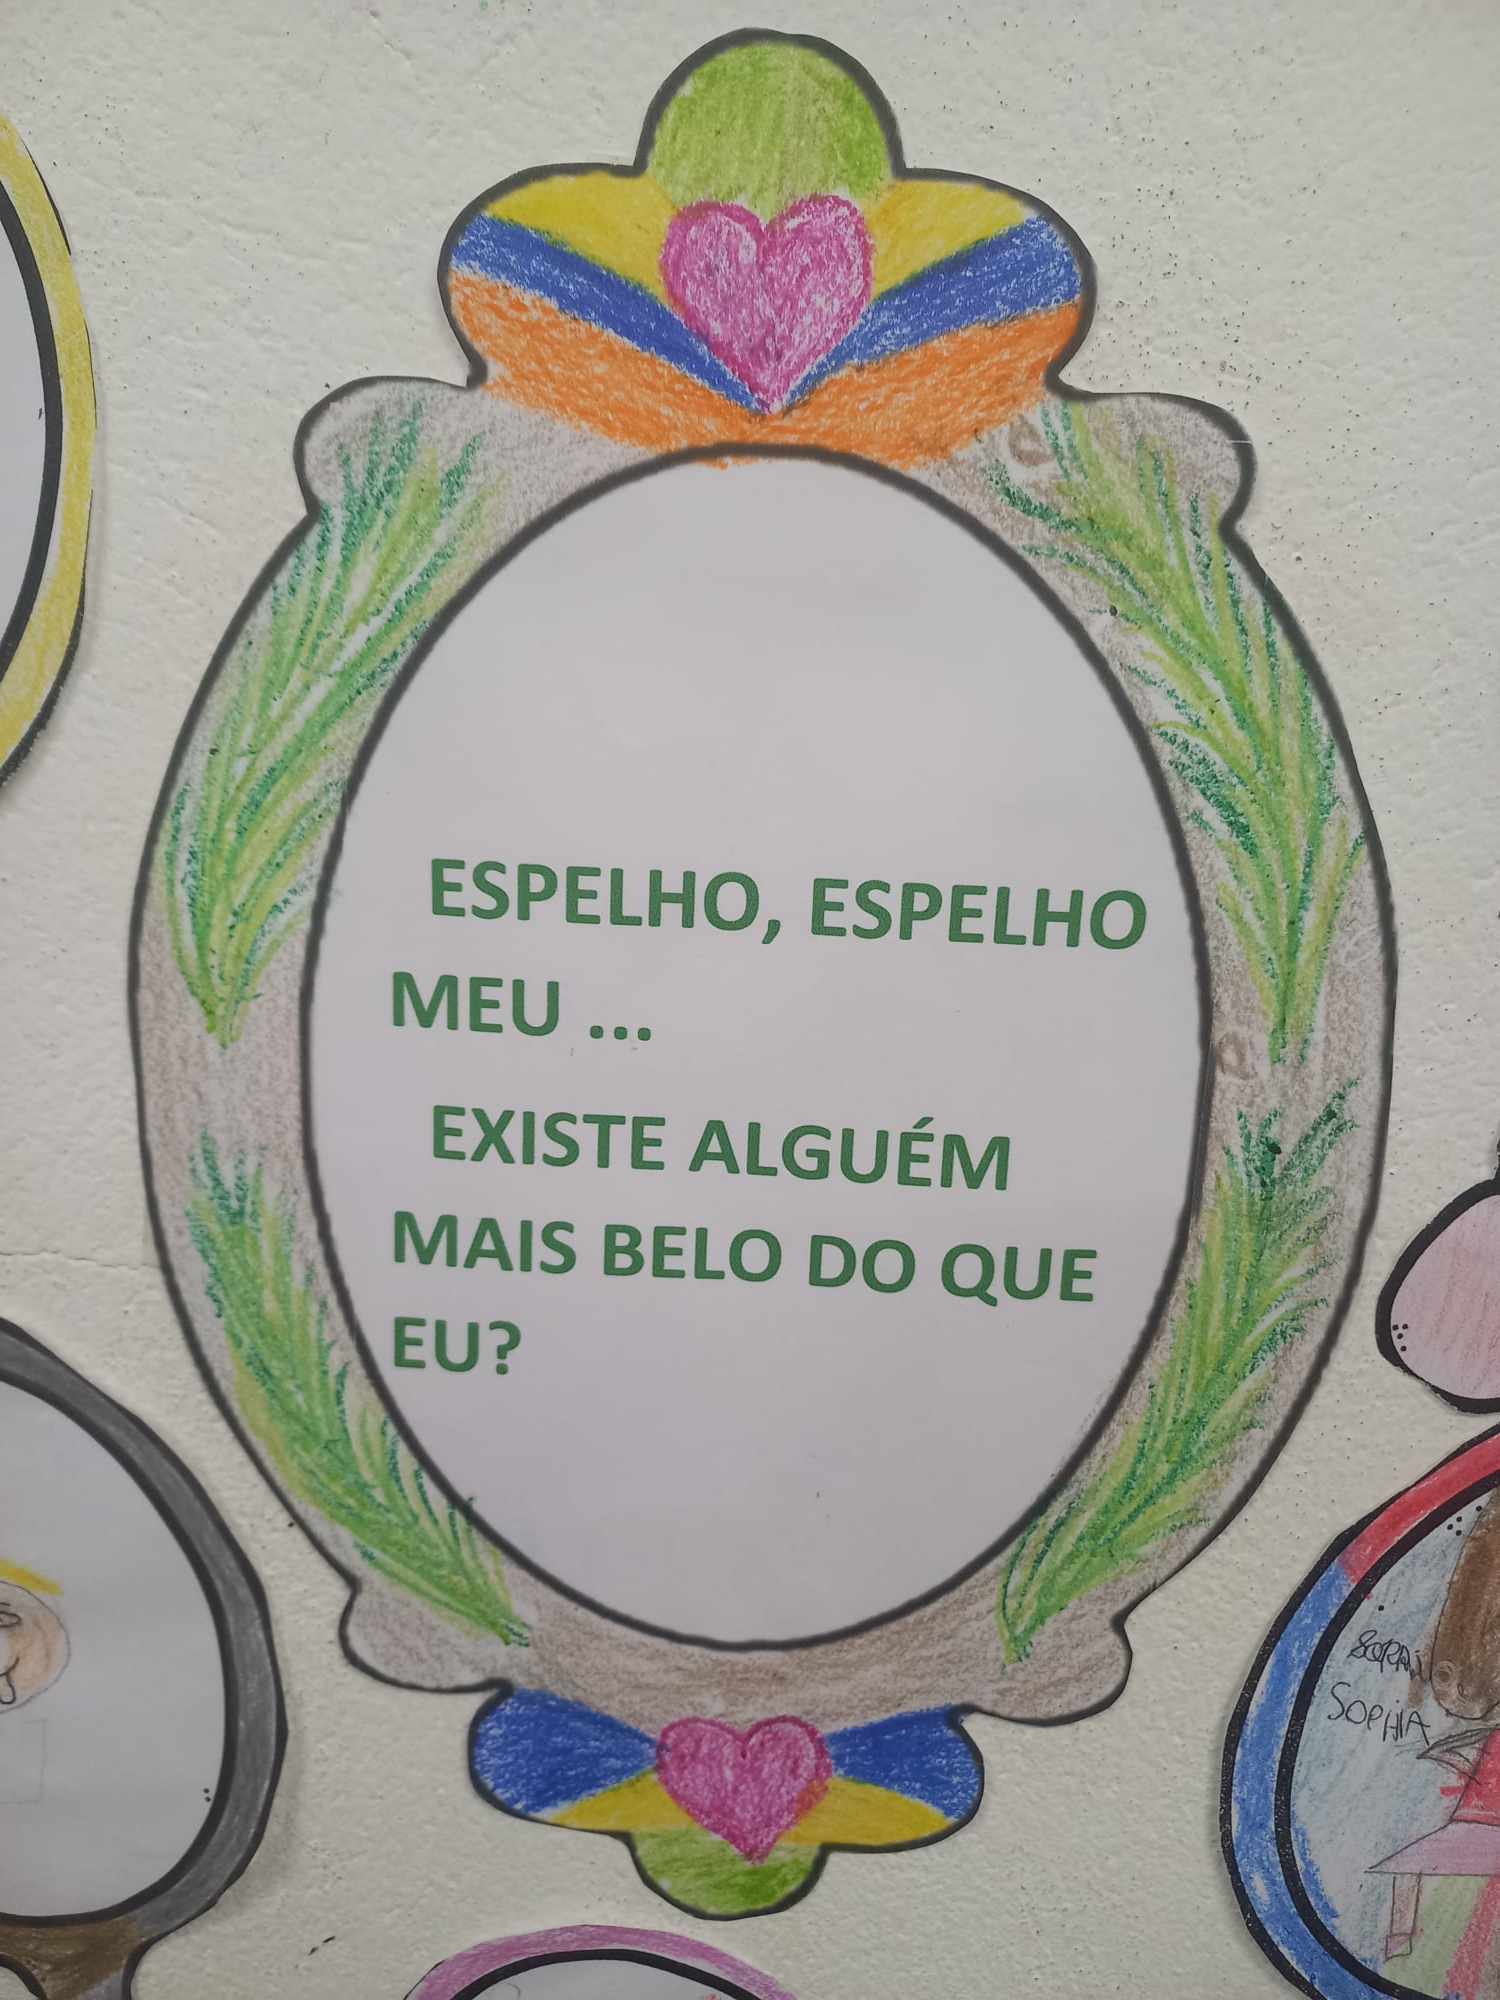 ESPELHO, ESPELHO
MEU ...
EXISTE ALGUÉM
MAIS BELO DO QUE
EU?
SOPHIA